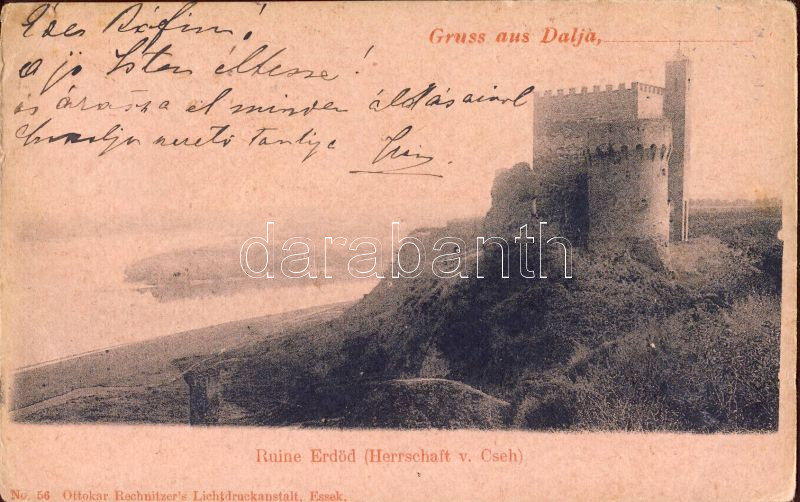 Édes Bófim!
a jó Isten éltesse!
és árassza el minden áldásaival
szerető Tantija
Gruss aus Dalja,
darabanth
Ruine Erdöd (Herrschaft v. Cseh)
No. 56 Ottokar Rechnitzer's Lichtdruckanstalt, Essek.